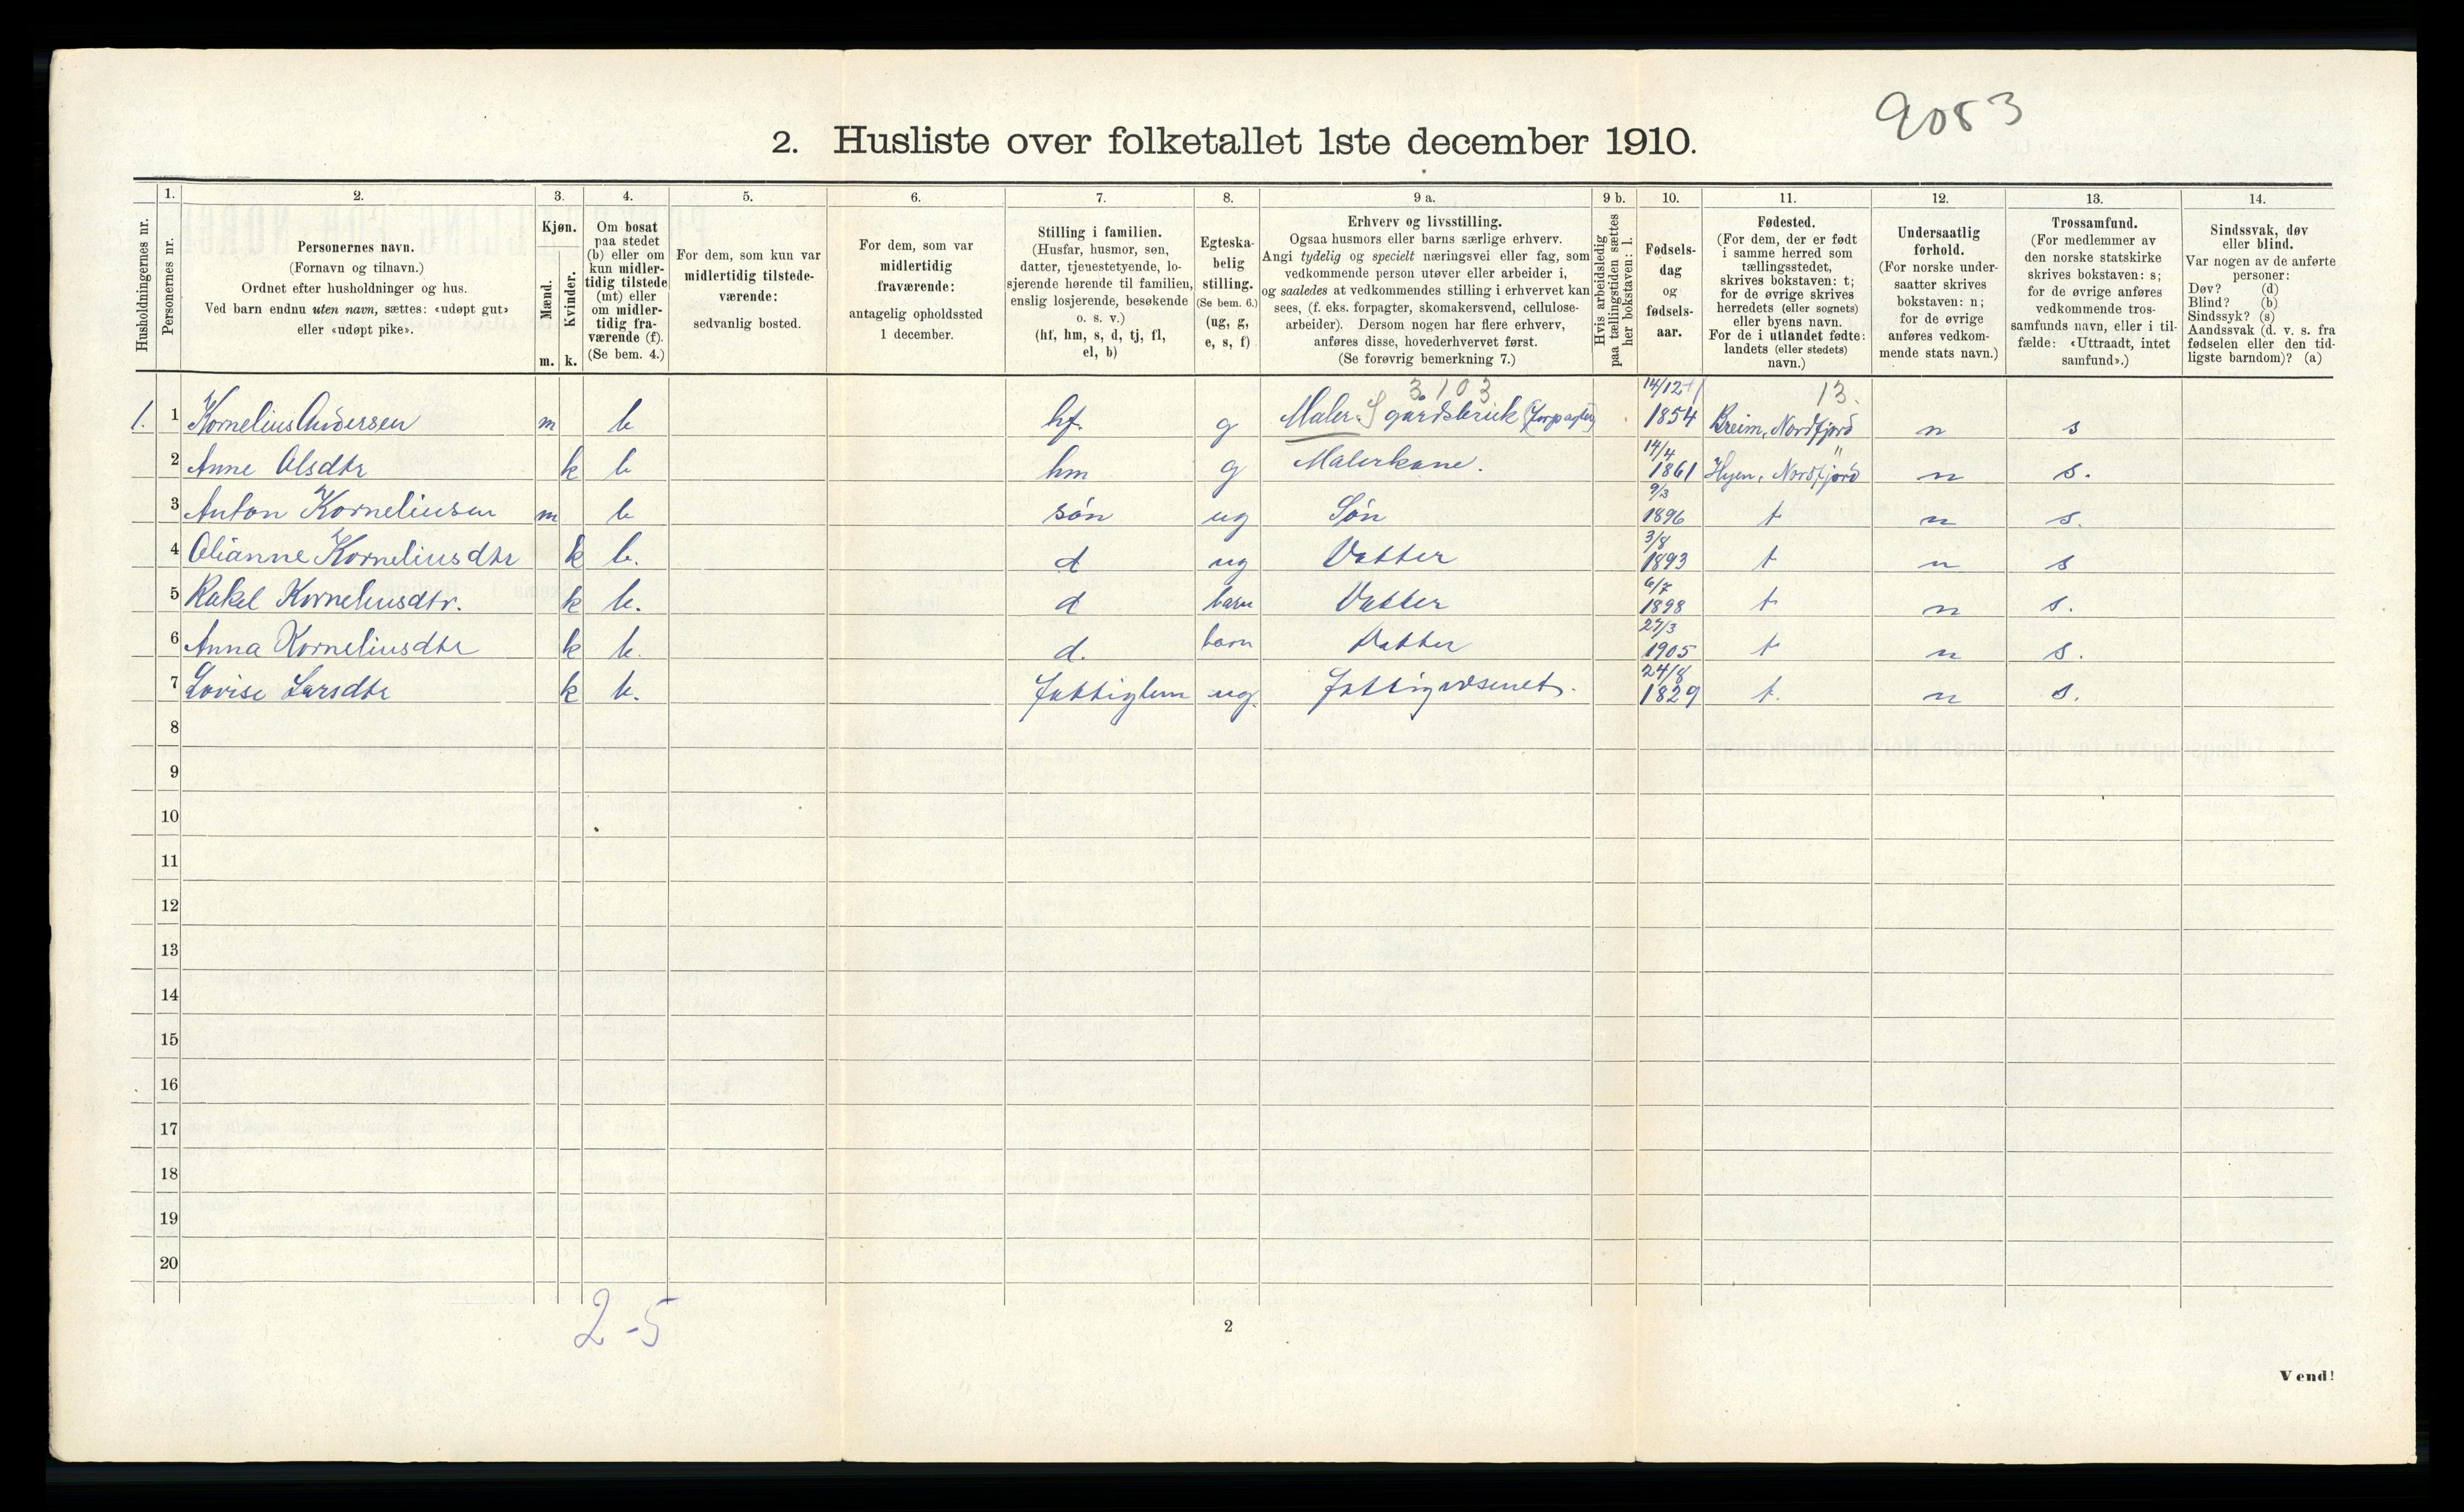 9083
2. Husliste over folketallet 1ste december 1910.
Husholdningernes nr.
1.
Personernes nr.
2.
Personernes navn.
(Fornavn og tilnavn.)
Ordnet efter husholdninger og hus.
Ved barn endnu uten navn, sættes: «udøpt gut»
eller «udøpt pike».
3.
Kjøn.
Mænd.
Kvinder.
m. k.
4.
Om bosat
paa stedet
(b) eller om
kun midler-
tidig tilstede
(mt) eller
om midler-
tidig fra-
værende (f).
(Se bem. 4.)
5.
For dem, som kun var
midlertidig tilstede-
værende:
sedvanlig bosted.
6.
For dem, som var
midlertidig
fraværende:
antagelig opholdssted
1 december.
7.
Stilling i familien.
(Husfar, husmor, søn,
datter, tjenestetyende, lo-
sjerende hørende til familien,
enslig losjerende, besøkende
o. s. v.)
(hf, hm, s, d, tj, fl,
el, b)
8.
Egteska-
belig
stilling.
(Se bem. 6.)
(ug, g,
e, s, f)
9 a.
Erhverv og livsstilling.
Ogsaa husmors eller barns særlige erhverv.
Angi tydelig og specielt næringsvei eller fag, som
vedkommende person utøver eller arbeider i,
og saaledes at vedkommendes stilling i erhvervet kan
sees, (f. eks. forpagter, skomakersvend, cellulose-
arbeider). Dersom nogen har flere erhverv,
anføres disse, hovederhvervet først.
(Se forøvrig bemerkning 7.)
9 b.
Hvis arbeidsledig
paa tællingstiden sættes
her bokstaven: l.
10.
Fødsels-
dag
og
fødsels-
aar.
11.
Fødested.
(For dem, der er født
i samme herred som
tællingsstedet,
skrives bokstaven: t;
for de øvrige skrives
herredets (eller sognets)
eller byens navn.
For de i utlandet fødte:
landets (eller stedets)
navn.)
12.
Undersaatlig
forhold.
(For norske under-
saatter skrives
bokstaven: n;
for de øvrige
anføres vedkom-
mende stats navn.)
13.
Trossamfund.
(For medlemmer av
den norske statskirke
skrives bokstaven: s;
for de øvrige anføres
vedkommende tros-
samfunds navn, eller i til-
fælde: «Uttraadt, intet
samfund».)
14.
Sindssvak, døv
eller blind.
Var nogen av de anførte
personer:
Døv? (d)
Blind? (b)
Sindssyk? (s)
Aandssvak (d. v. s. fra
fødselen eller den tid-
ligste barndom)? (a)
3103 14/12 13.
1. 1 Kornelius Andersen m b hf. g Maler gårdsbruk (forpagter) 1854 Breim, Nordfjord n s
2 Anne Olsdtr k b hm g Malerkone. 14/4 1861 Hyen, Nordfjord n s.
3 Anton Korneliusen m b søn ug Søn 9/3 1896 t n s.
4 Olianne Korneliusdtr k b. d ug Datter 3/8 1893 t n s
5 Rakel Korneliusdtr. k b. d barn Datter 6/7 1898 t n s.
6 Anna Korneliusdtr k b. d. barn Datter 27/3 1905 t n s.
7 Lovise Larsdtr k b. fattiglem ug. fattigvæsenet. 24/8 1829 t. n s.
8
9
10
11
12
13
14
15
16
17
18
19
20
2-5
2
Vend!